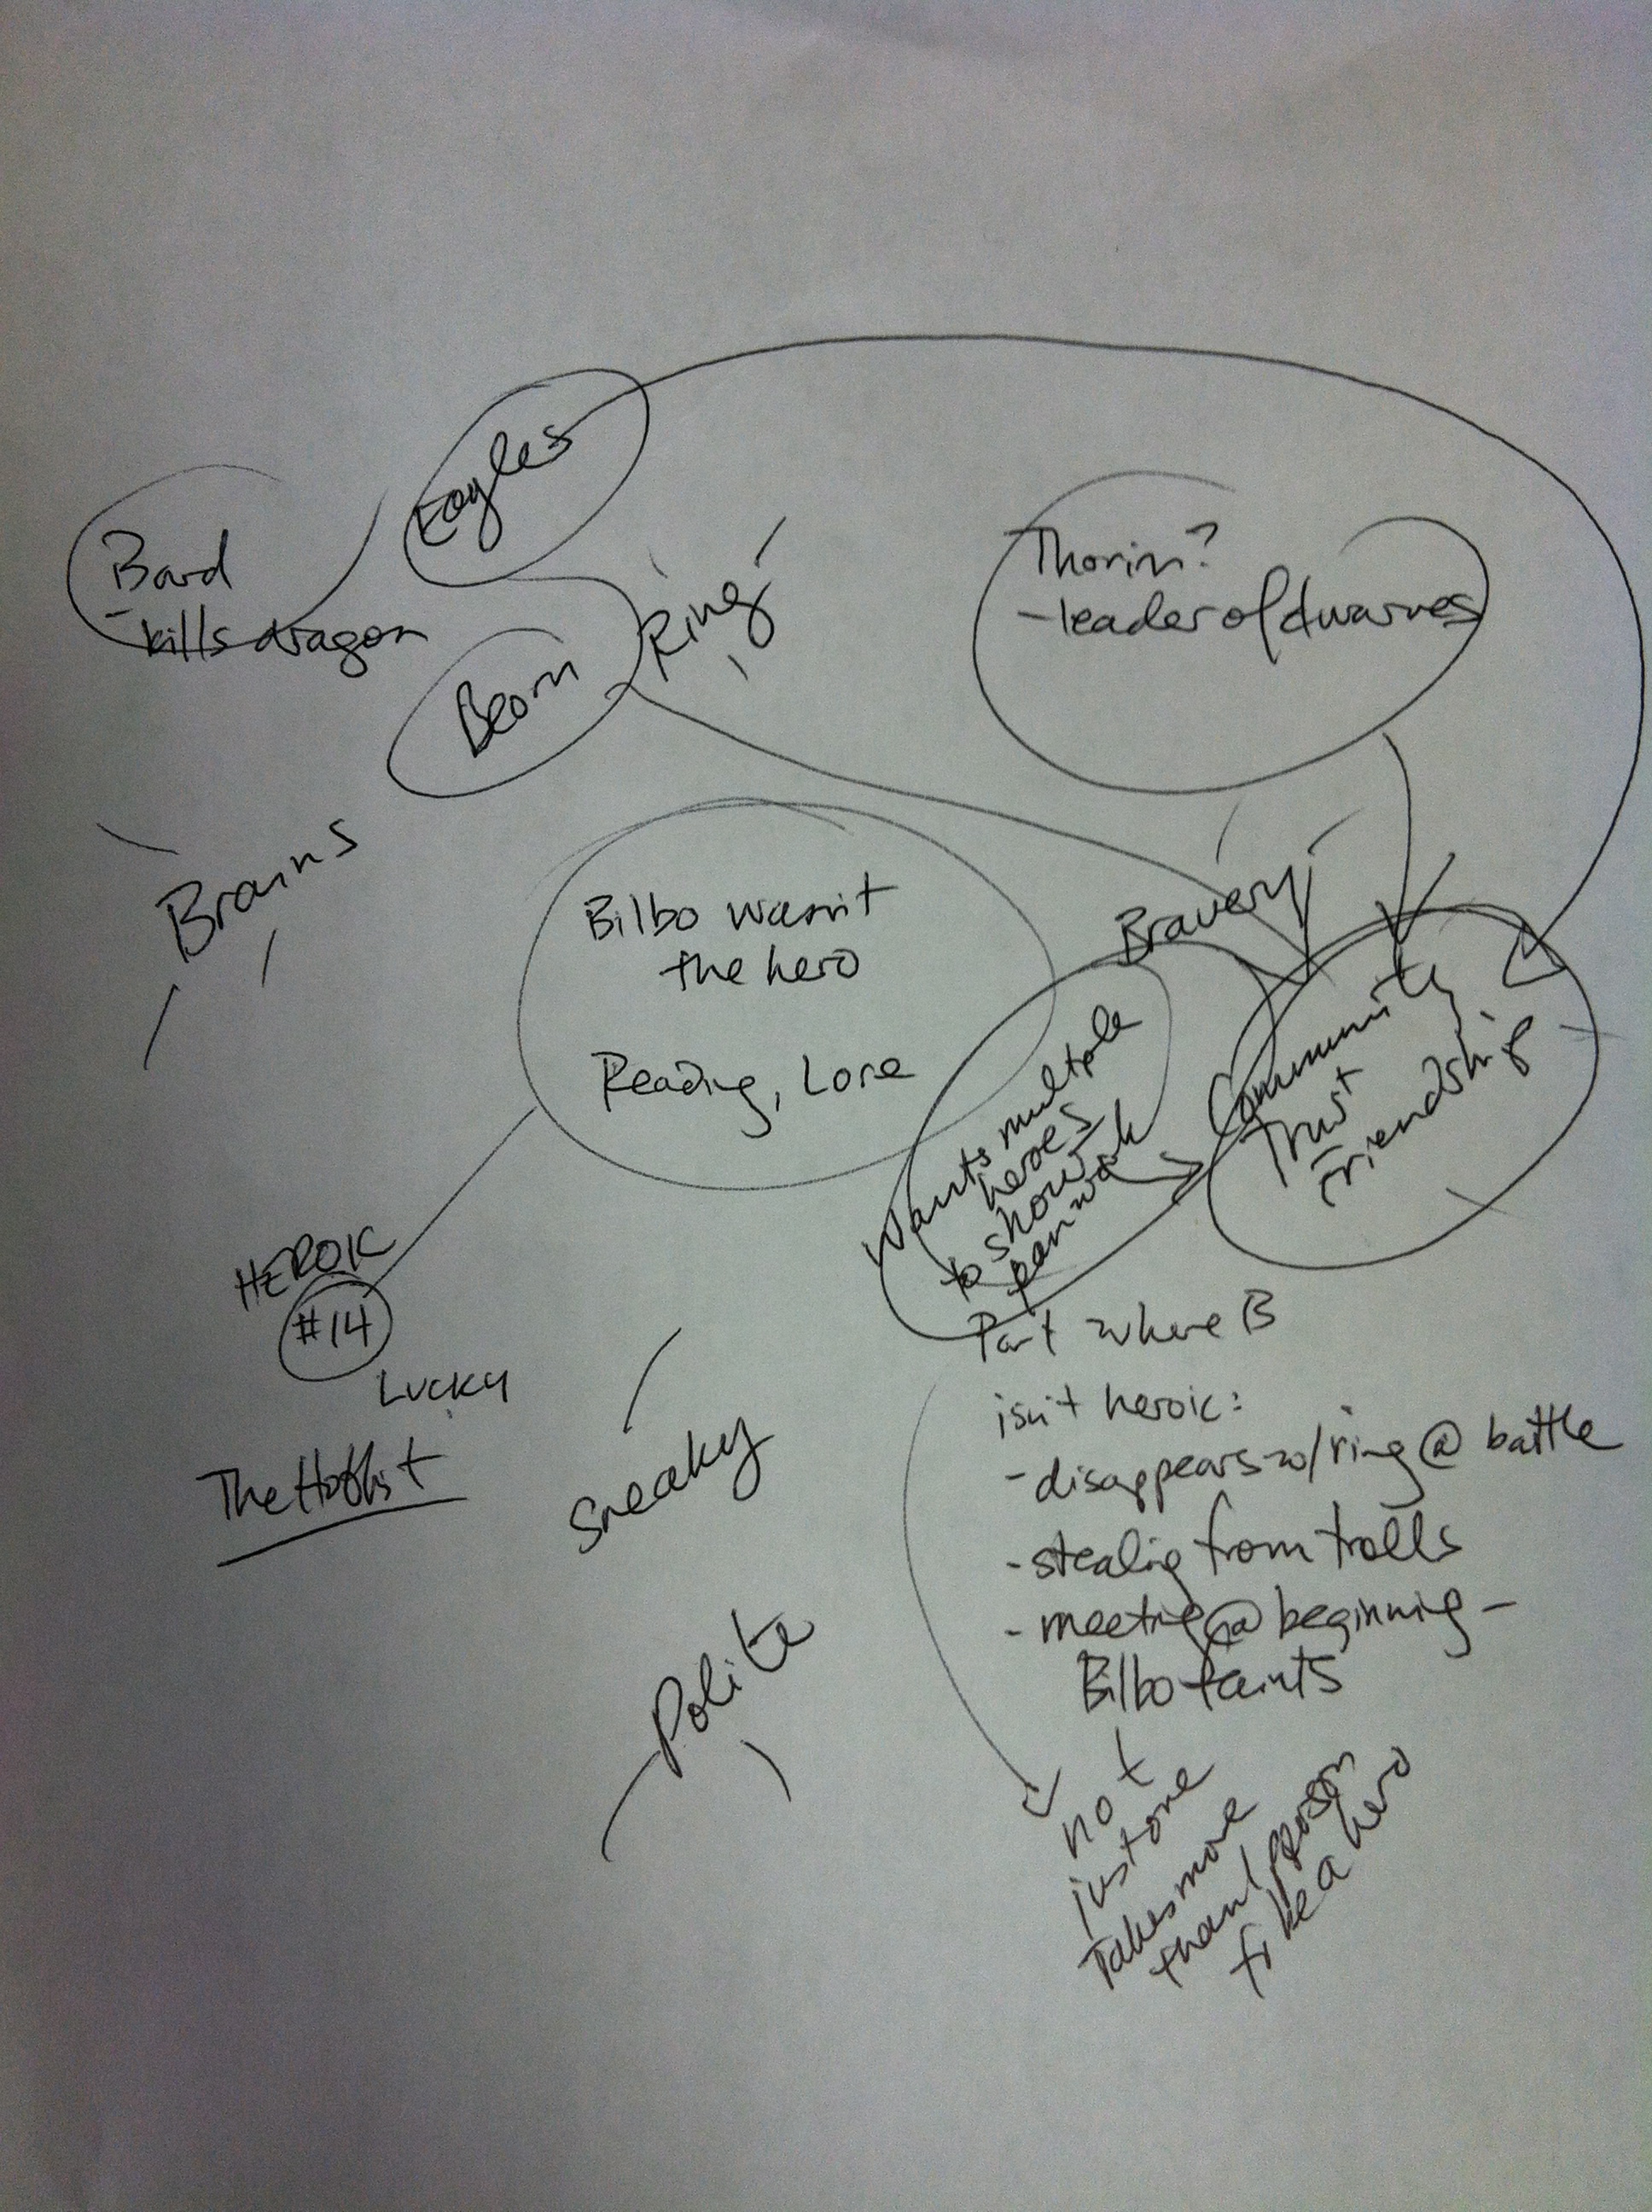 Eagles
Bard
- kills dragon
Beorn
Ring
Thorin?
- leader of dwarves
Brains
Bravery
Bilbo wasn't
the hero
Reading, Lore
Wants multiple
heroes
to show
teamwork
Community
Trust
Friendship
HEROIC
#14
LUCKY
The Hobbit
Sneaky
Polite
Part where B
isn't heroic:
- disappears w/ring @ battle
- stealing from trolls
- meeting @ beginning -
Bilbo faints
not
just one
Takes more
than 1 person
be a hero